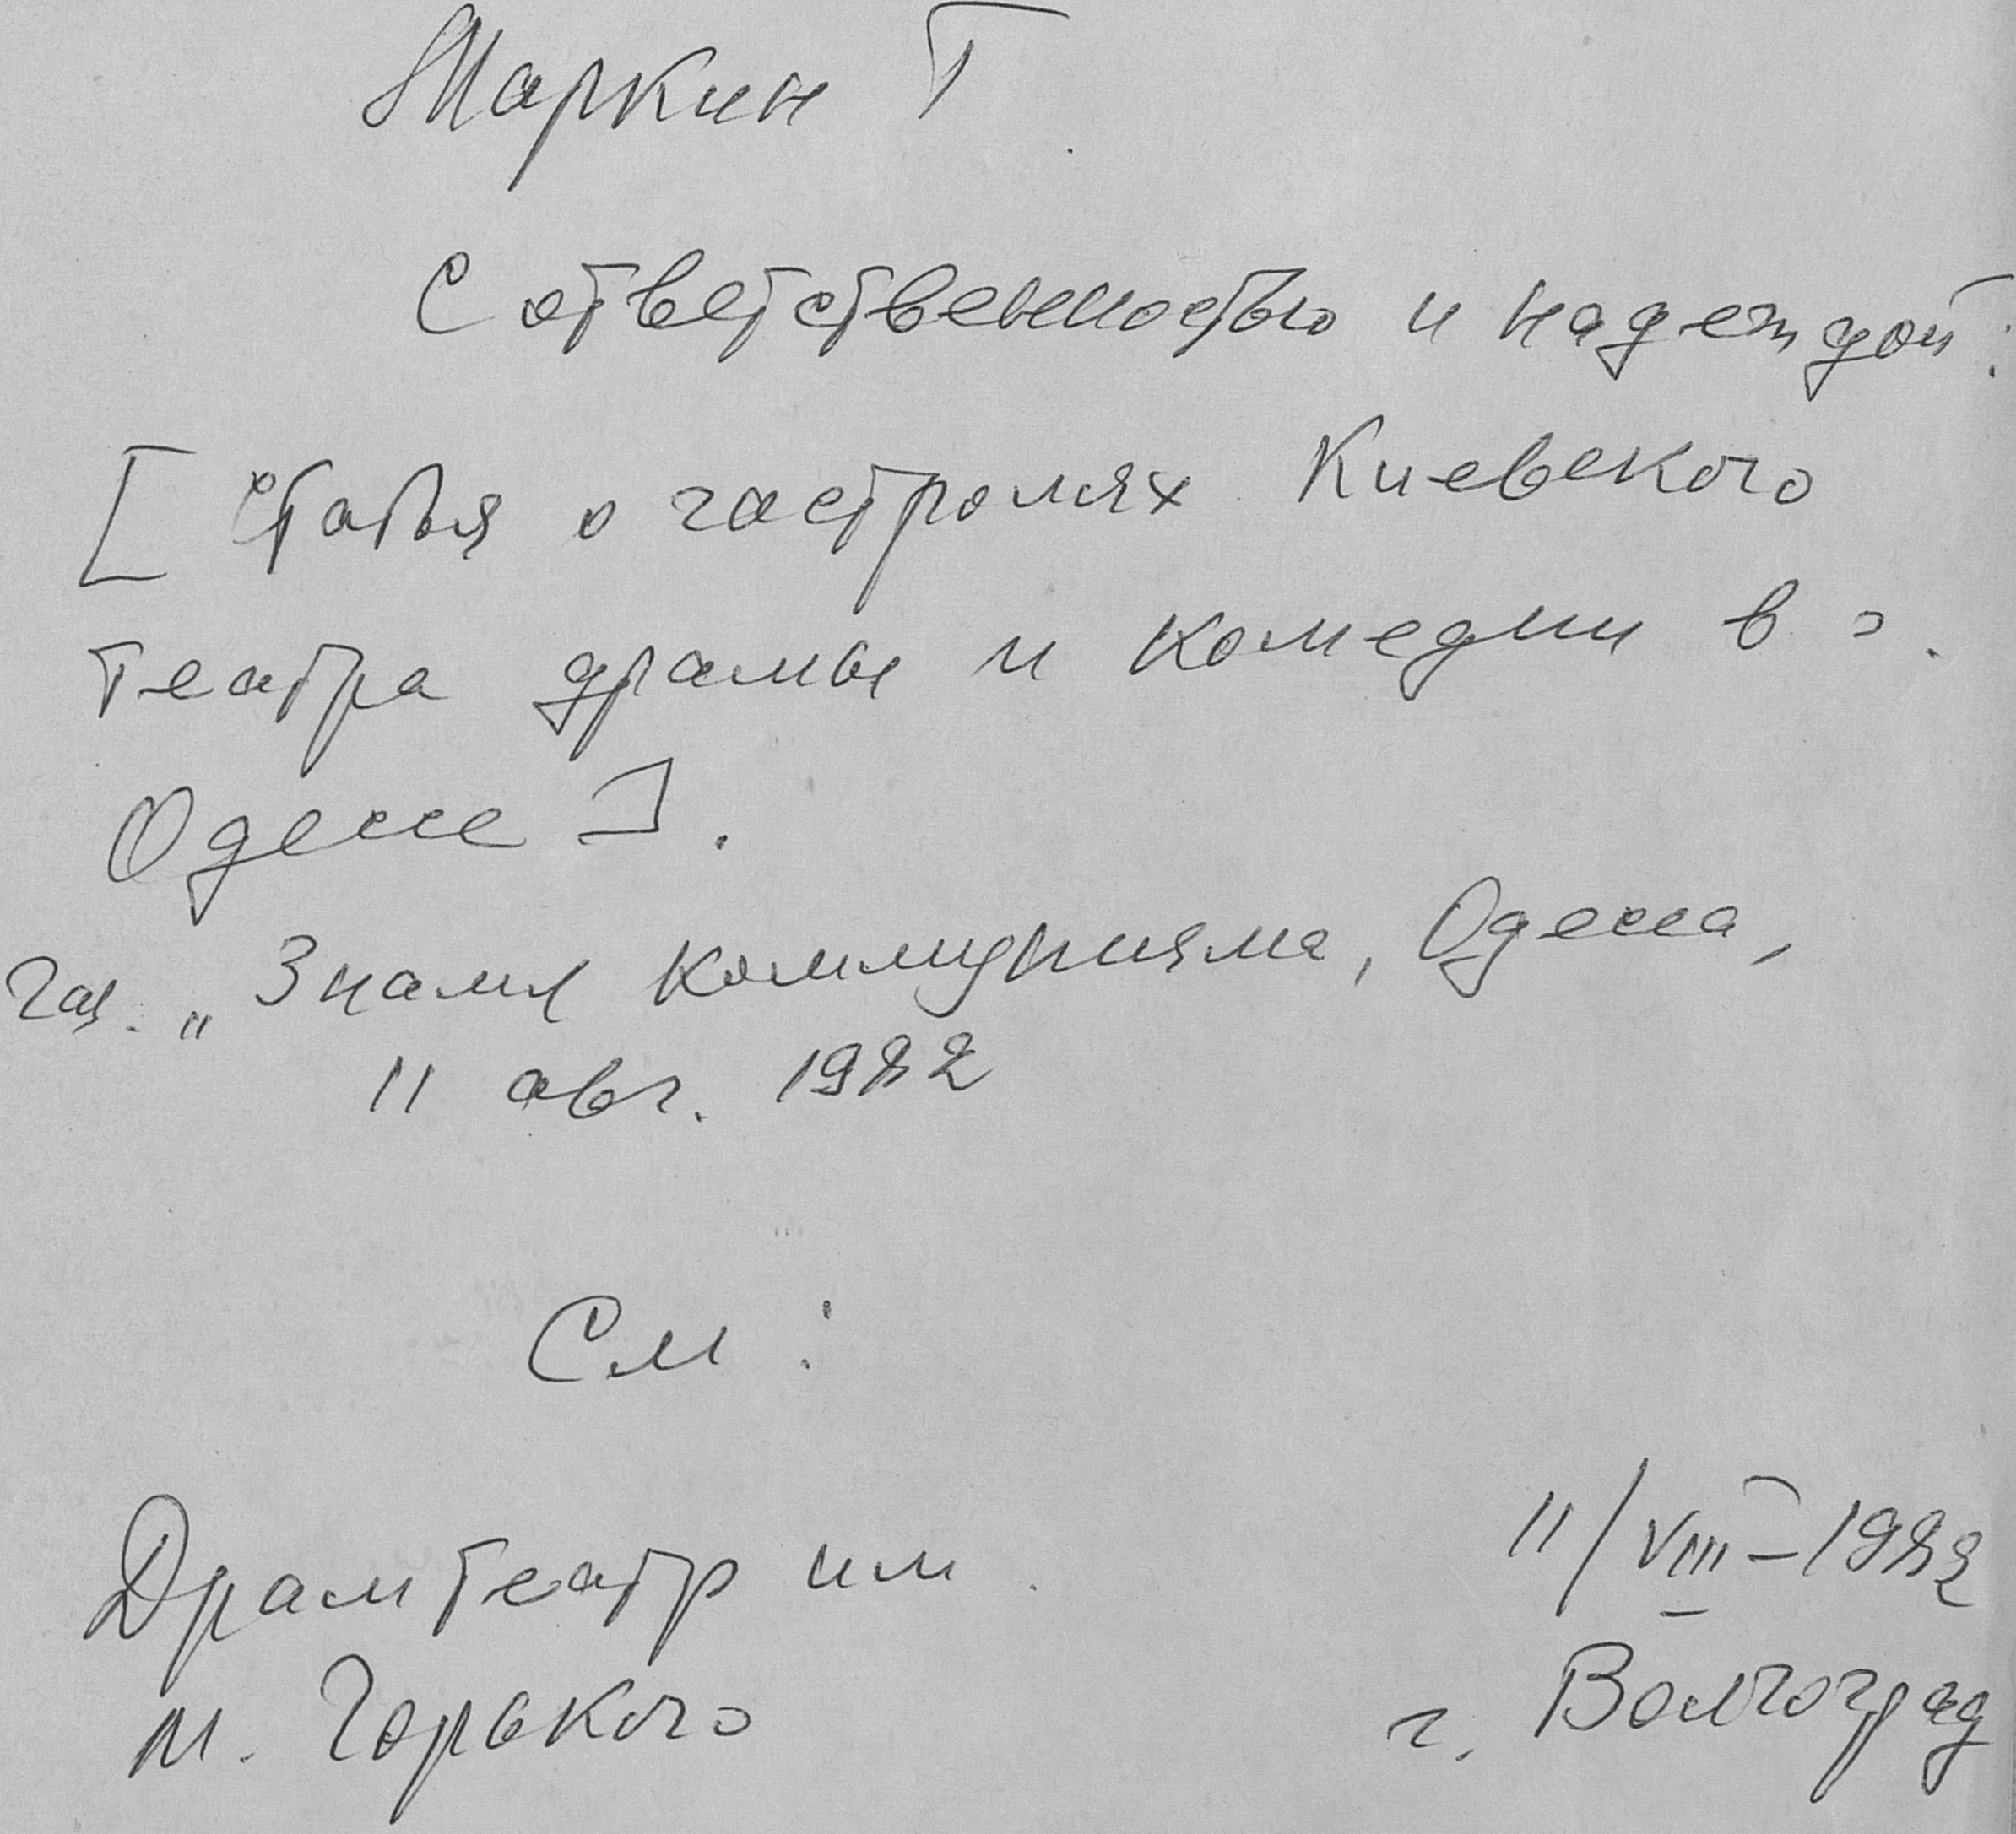 Маркин Г.
С ответственностью и надеждой:
[ Статья о гастролях Киевского
театра драмы и комедии в г.
Одессе ].
Газ. „Знамя коммунизма, Одесса,
11 авг. 1982
См:
Драмтеатр им.
М. Горького
11/VIII–1982
г. Волгоград